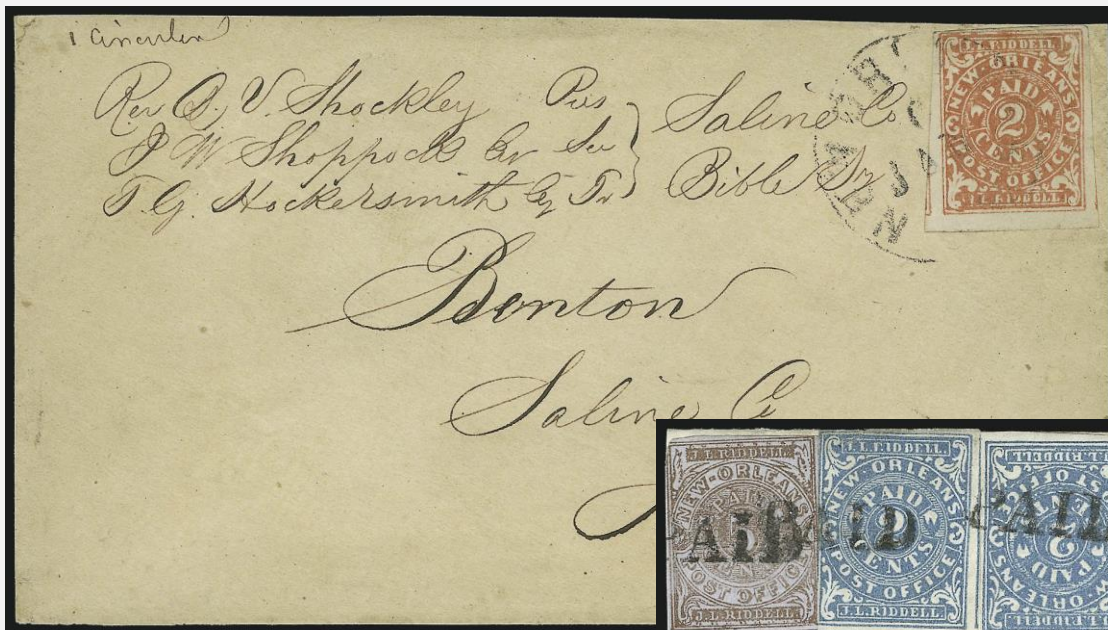 1 Circular
Rev Q. V. Shockley Pres
J W Shoppock Cor Sec
T. G. Hockersmith Esq Tr
Saline Co
Bible Sy
Benton
Saline Co
J.L.RIDDELL
NEW-ORLEANS
PAID
2
CENTS
POST OFFICE
J.L.RIDDELL
NEW OR
J.L.RIDDELL.
NEW-ORLEANS
PAID
5
POST OFFICE
J.L.RIDDELL
AID
J.L.RIDDELL.
NEW-ORLEANS
PAID
2
CENTS
POST OFFICE
J.L.RIDDELL.
PAID
J.L.RIDDELL
NEW-ORLEANS
PAID
2
CENTS
POST OFFICE
J.L.RIDDELL.
PAID